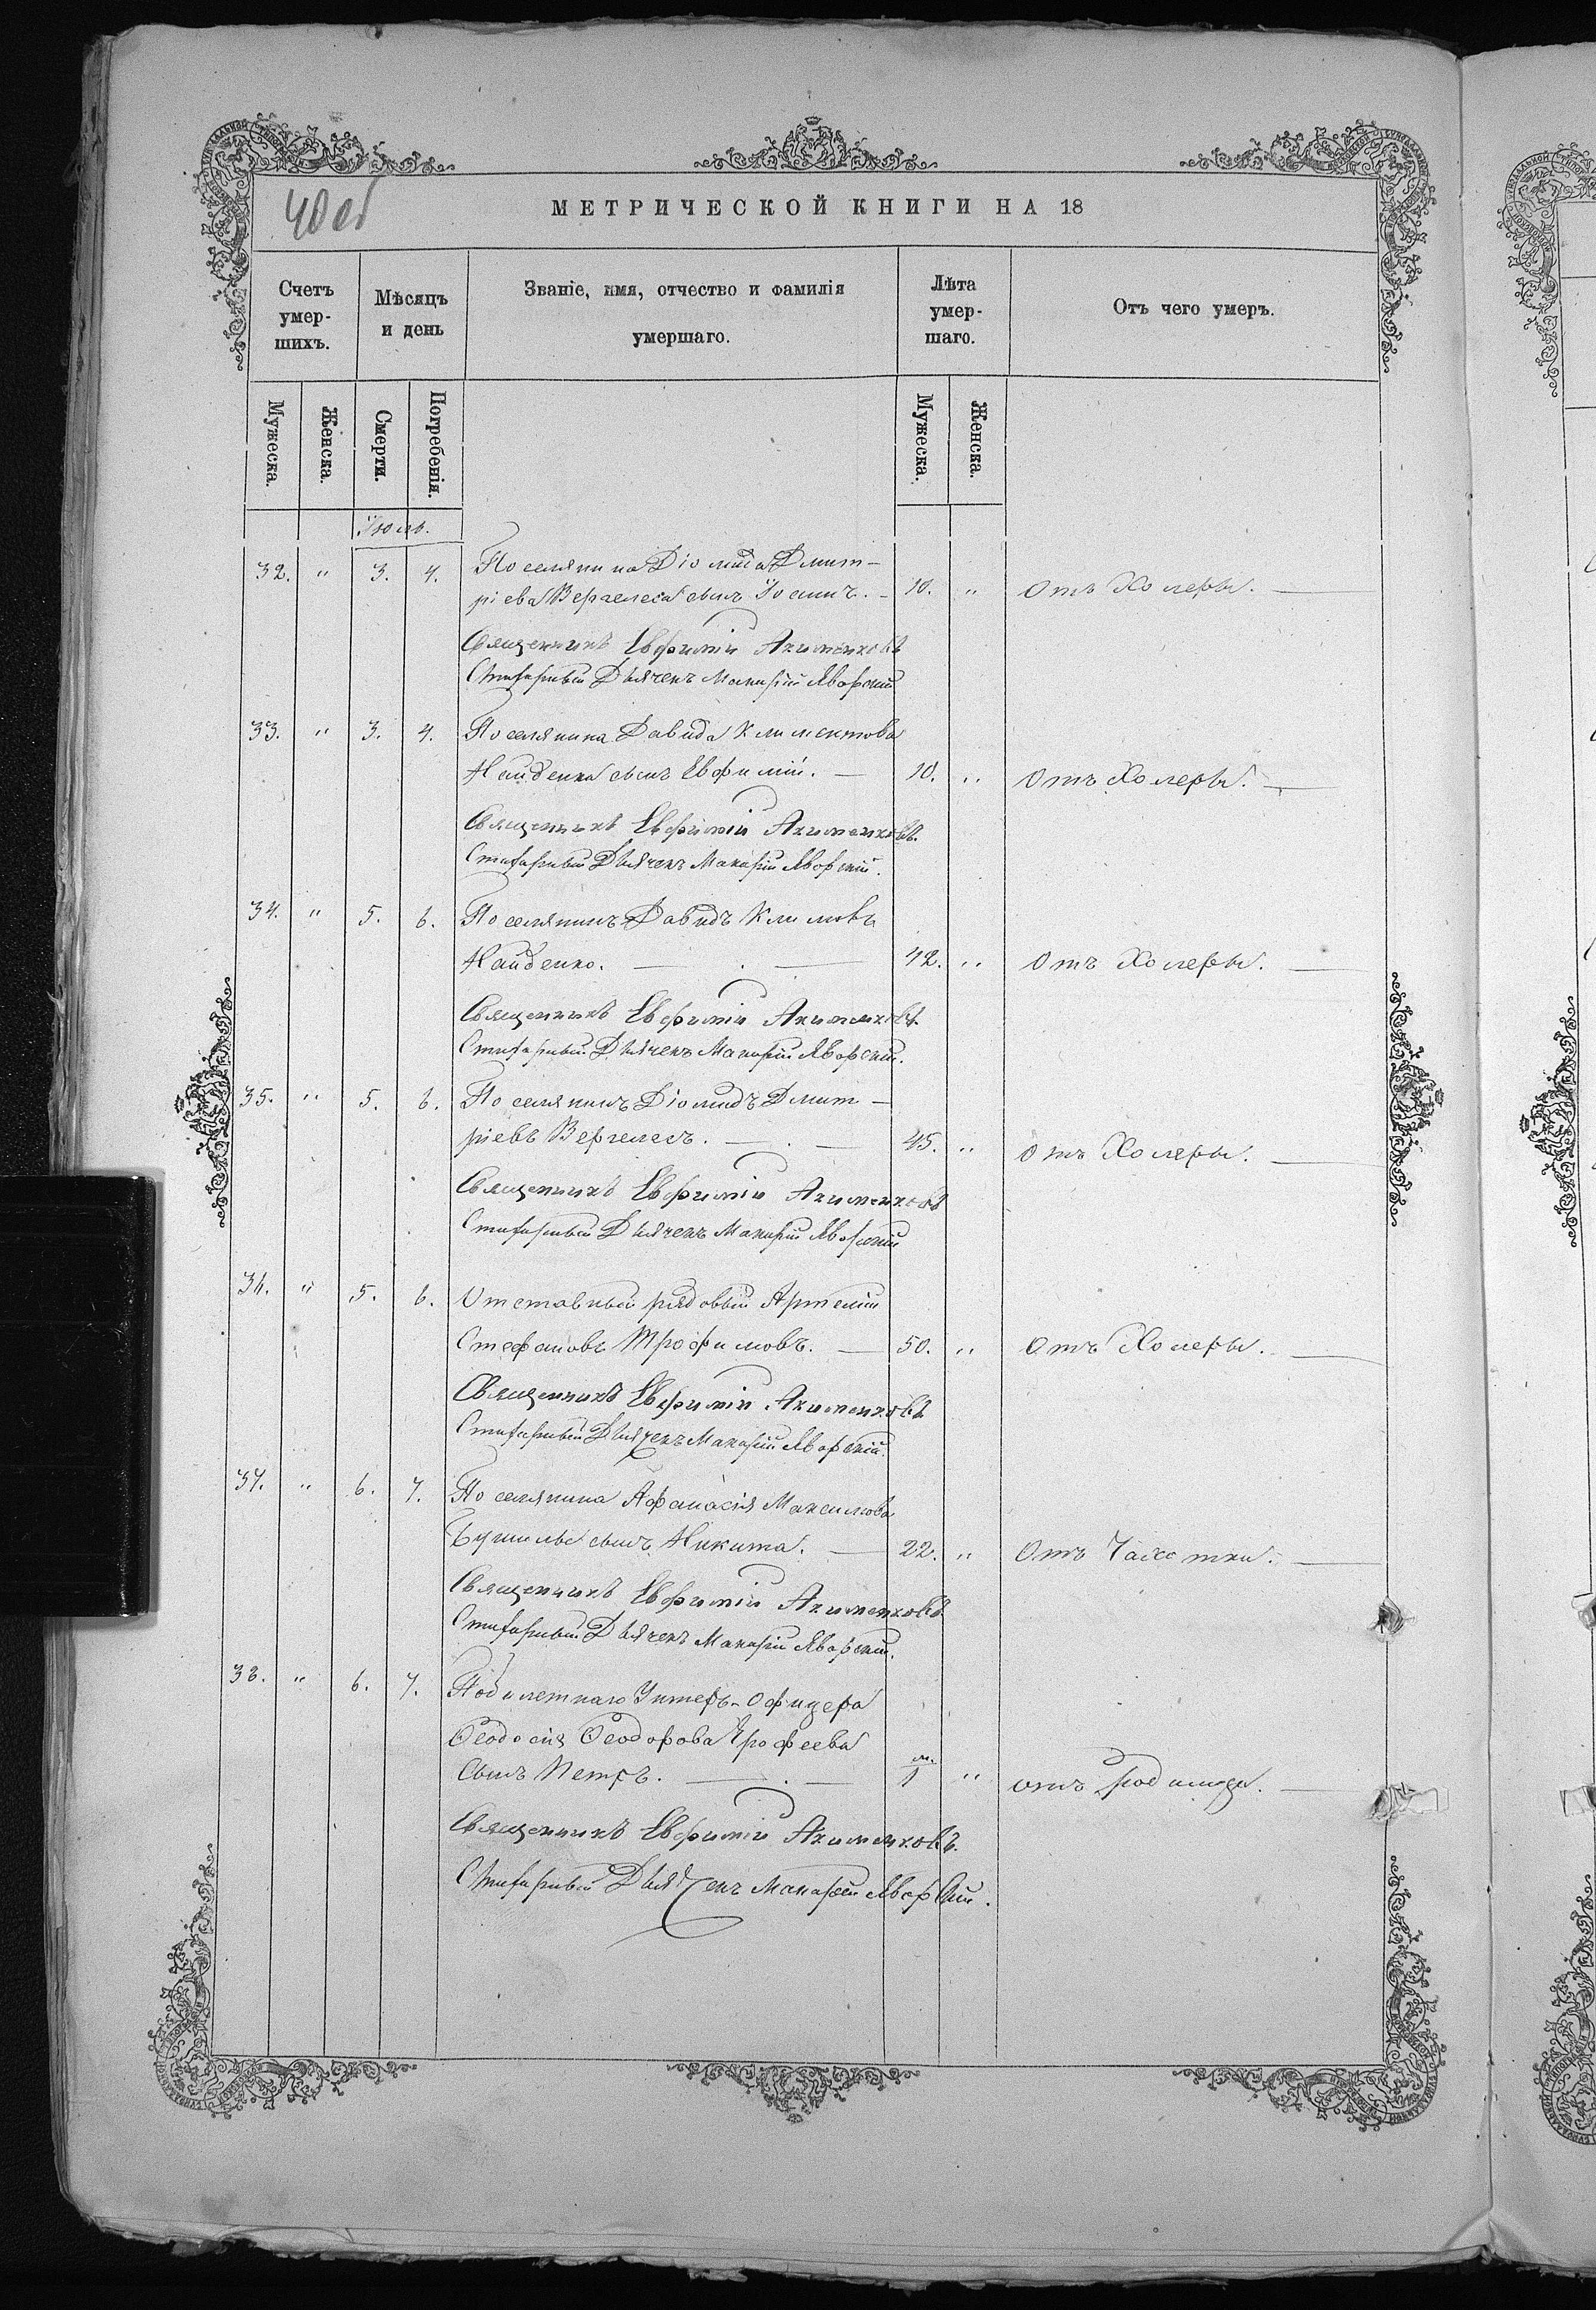 40 об
МЕТРИЧЕСКОЙ КНИГИ НА 18
Счетъ умер-шихъ.
Мѣсяцъ и день
Званіе, имя, отчество и фамилія умершаго.
Лѣта умер-шаго.
Отъ чего умеръ.
Мужеска. Женска. Смерти. Погребенія. Мужеска. Женска.
Іюль.
32. " 3. 4. Поселянина Діомида Дмит-
ріева Вергелеса сынъ Іоаннъ. - 10. " Отъ Холеры.
Священникъ Евфимій Акименковъ
Стихарный Дьячекъ Макарій Яворскій
33. " 3. 4. Поселянина Давида Климентова
Найденка сынъ Евфимій. 10. " Отъ Холеры.
Священникъ Евфимій Акименковъ.
Стихарный Дьячекъ Макарій Яворскій.
34. " 5. 6. Поселянинъ Давидъ Климовъ
Найденко. 42. " Отъ Холеры.
Священникъ Евфимій Акименковъ.
Стихарный Дьячекъ Макарій Яворскій.
35. " 5. 6. Поселянинъ Діомидъ Дмит-
ріевъ Вергелесъ. 45. " Отъ Холеры.
Священникъ Евфимій Акименковъ
Стихарный Дьячекъ Макарій Яворскій
36. " 5. 6. Отставный рядовый Артемій
Стефановъ Трофимовъ. 50. " Отъ Холеры.
Священникъ Евфимій Акименковъ
Стихарный Дьячекъ Макарій Яворскій.
37. " 6. 7. Поселянина Афанасія Максимова
сынъ Никита. 22. " Отъ Чахотки.
Священникъ Евфимій Акименковъ
Стихарный Дьячекъ Макарій Яворскій.
38. " 6. 7. Унтеръ-Офицера
Ѳеодосія Ѳеодорова Ерофеева
сынъ Петръ. 1 м. " отъ родимца.
Священникъ Евфимій Акименковъ.
Стихарный Дьячекъ Макарій Яворскій.